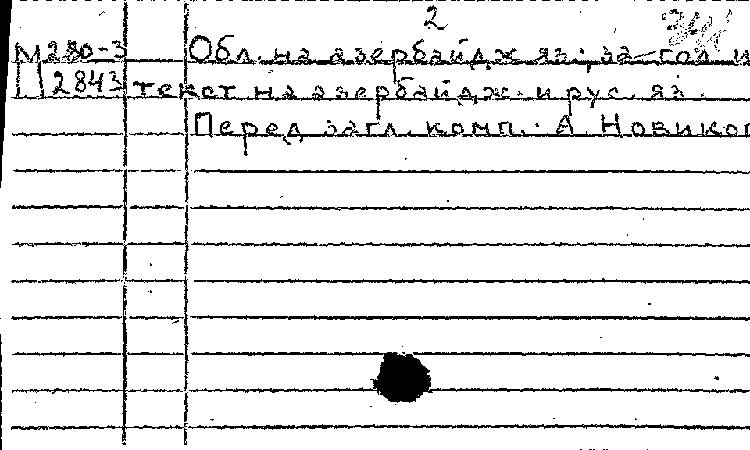 2
М 280-3 Обл. на азербайдж. яз.; загол и
2843 текст на азербайдж. и рус. яз.
Перед загл. комп.: А. Новиков